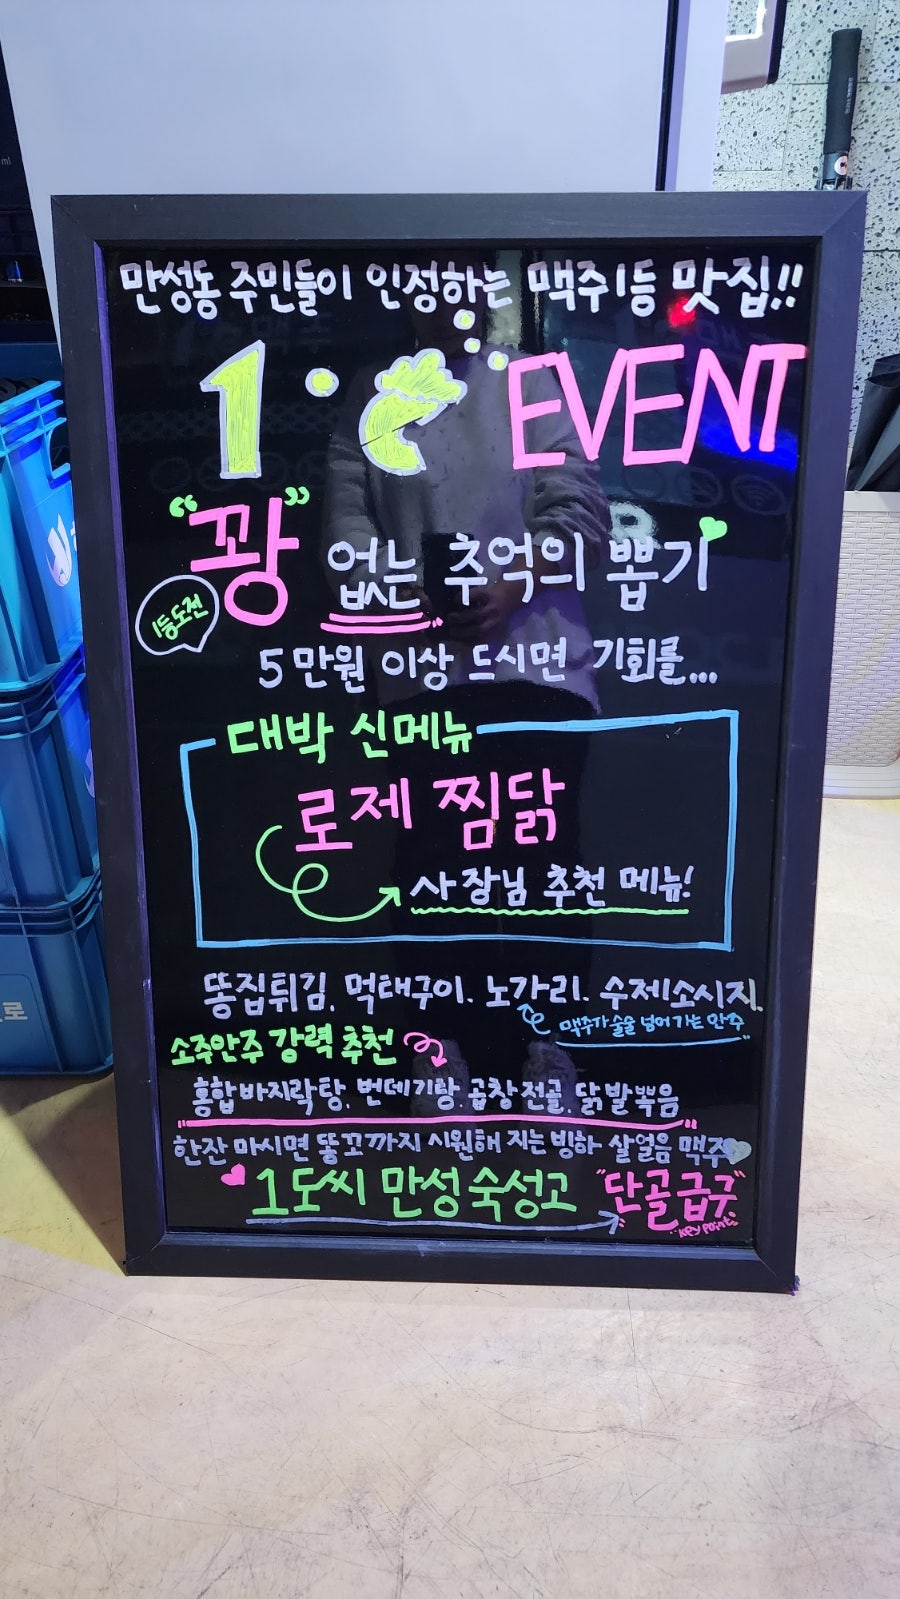 만성동 주민들이 인정하는 맥주1등 맛집!!
1℃ EVENT
"꽝" 없는 추억의 뽑기
1등도전
5만원 이상 드시면 기회를...
대박 신메뉴
로제 찜닭
사장님 추천 메뉴!
똥집튀김. 먹태구이. 노가리. 수제소시지.
맥주가 술술 넘어가는 안주
소주안주 강력 추천
홍합바지락탕. 번데기탕. 곱창전골. 닭발볶음
한잔 마시면 똥꼬까지 시원해 지는 빙하 살얼음 맥주
1도씨 만성숙성고 "단골급구"
"key point"